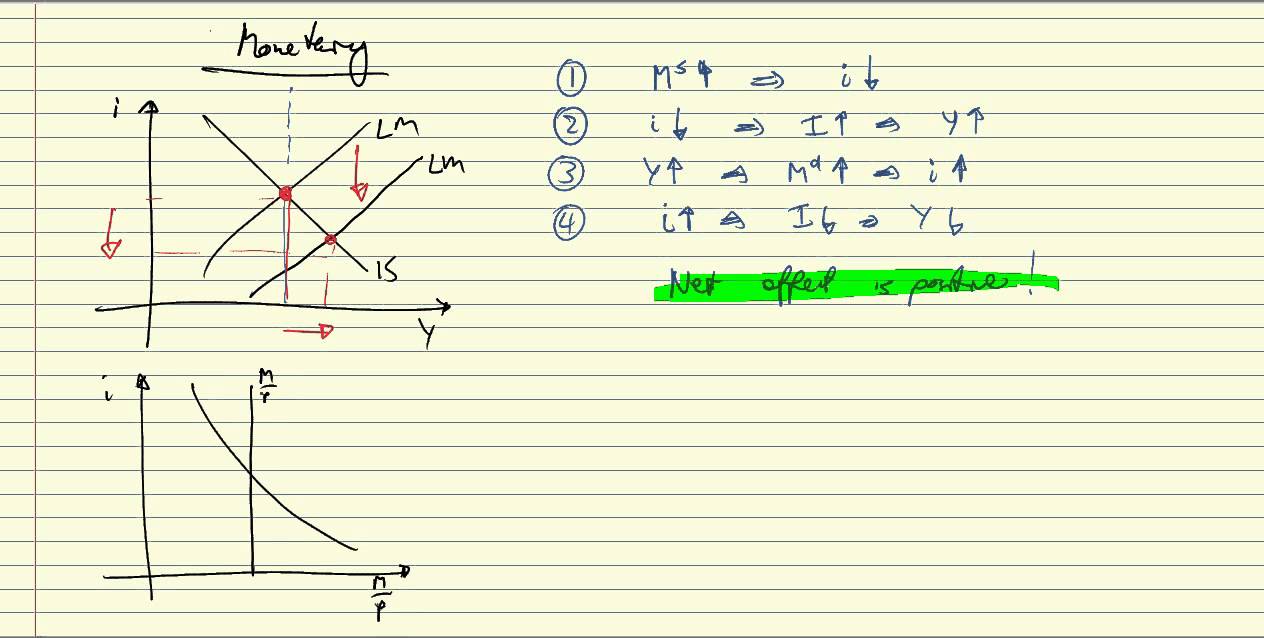 Monetary
i
LM
LM
IS
Y
i
M/P
M/P
① Mˢ↑ ⇒ i↓
② i↓ ⇒ I↑ ⇒ Y↑
③ Y↑ ⇒ Mᵈ↑ ⇒ i↑
④ i↑ ⇒ I↓ ⇒ Y↓
Net effect is positive!